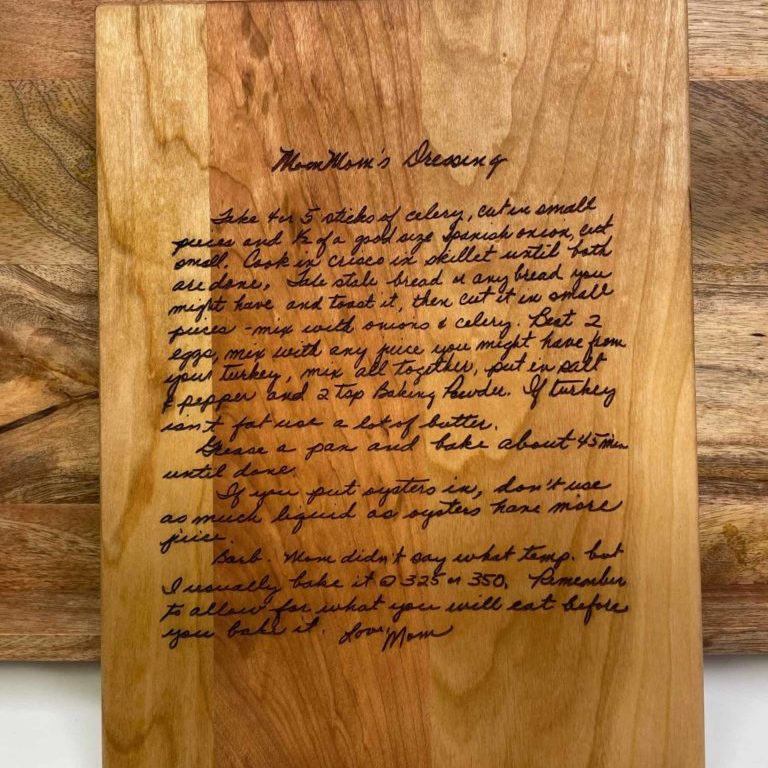 MomMom's Dressing
Take 4 or 5 sticks of celery, cut in small
pieces and ½ of a good size Spanish onion, cut
small. Cook in crisco in skillet until both
are done. Take stale bread or any bread you
might have and toast it, then cut it in small
pieces - mix with onions & celery. Beat 2
eggs, mix with any juice you might have from
your turkey, mix all together, put in salt
& pepper and 2 tsp Baking Powder. If turkey
isn't fat use a lot of butter.
Grease a pan and bake about 45 min
until done
If you put oysters in, don't use
as much liquid as oysters have more
juice.
Barb. Mom didn't say what temp. but
I usually bake it @ 325 or 350. Remember
to allow for what you will eat before
you bake it. Love, Mom